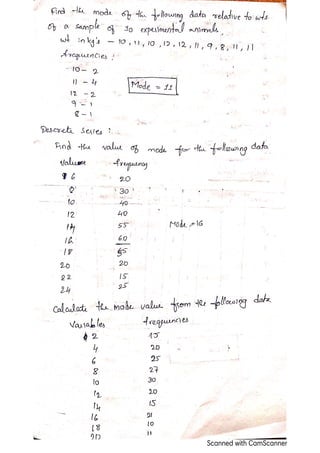 Find the mode of the following data relative to wts
of a sample of 10 experimental animals.
wt in kg's - 10, 11, 10, 12, 12, 11, 9, 8, 11, 11
frequencies :
10 - 2
11 - 4
Mode = 11
12 - 2
9 - 1
8 - 1
Descrete Series :
Find the value of mode for the following data
value frequency
6 20
8 30
10 40
12 40
14 55 Mode = 16
16 60
18 55
20 20
22 15
24 25
Calculate the mode value from the following data
Variables frequencies
2 15
4 20
6 25
8 27
10 30
12 20
14 15
16 21
18 10
20 11
Scanned with CamScanner